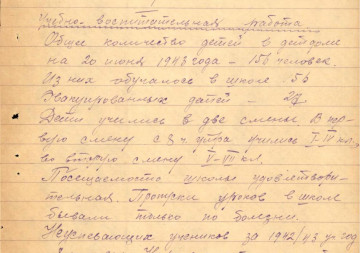 Учебно-воспитательная работа
Общее количество детей в детдоме
на 20 июня 1943 года - 158 человек
Из них обучалось в школе 53
Эвакуированных детей - 23
Дети учились в две смены. В пер-
вую смену с 8 ч. утра учились I-IV кл.
во вторую смену V-VI кл.
Посещаемость школы удовлетвори-
тельная. Пропуски уроков в школе
бывали только по болезни.
Неуспевающих учеников за 1942/43 уч. год